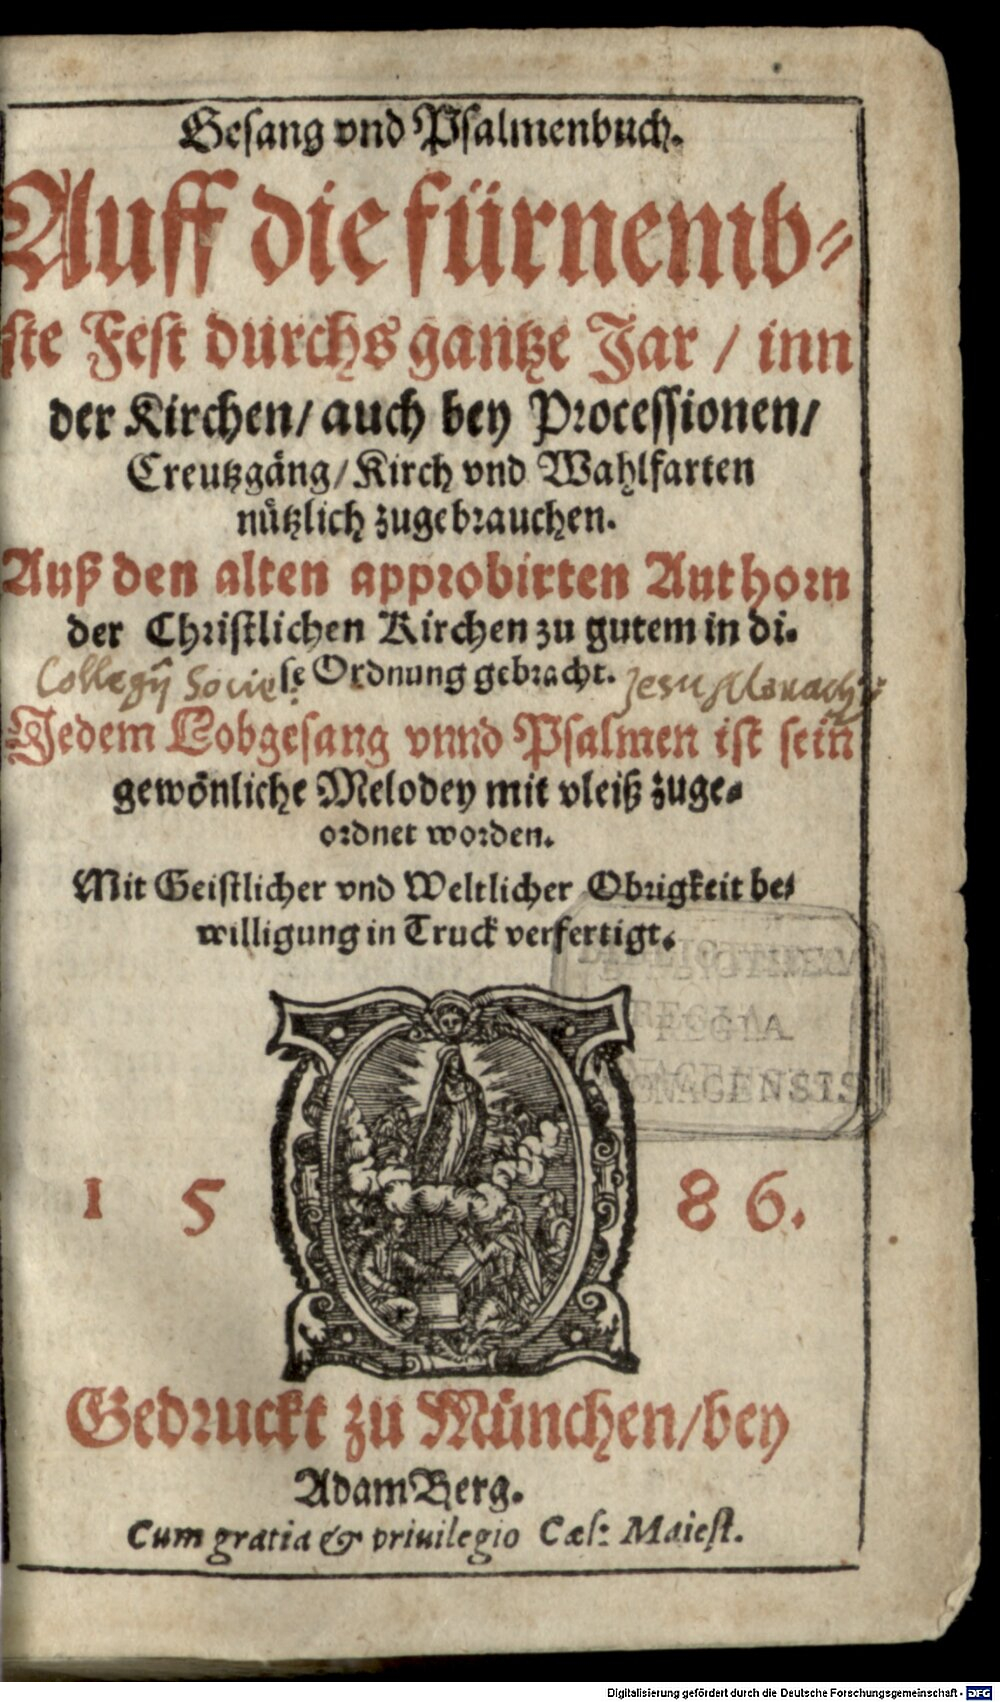 Gesang vnd Psalmenbuch.
Auff die fürnemb-
ste Fest durchs gantze Jar / inn
der Kirchen / auch bey Processionen /
Creutzgäng / Kirch vnd Wahlfarten
nützlich zugebrauchen.
Auß den alten approbirten Authorn
der Christlichen Kirchen zu gutem in di-
se Ordnung gebracht.
Collegij Societ: Jesu Monachij
Jedem Lobgesang vnnd Psalmen ist sein
gewönliche Melodey mit vleiß zuge-
ordnet worden.
Mit Geistlicher vnd Weltlicher Obrigkeit be-
willigung in Truck verfertigt.
BIBLIOTHECA
REGIA
MONACENSIS
1 5 8 6.
Gedruckt zu München / bey
Adam Berg.
Cum gratia & priuilegio Cæs: Maiest.
Digitalisierung gefördert durch die Deutsche Forschungsgemeinschaft - DFG